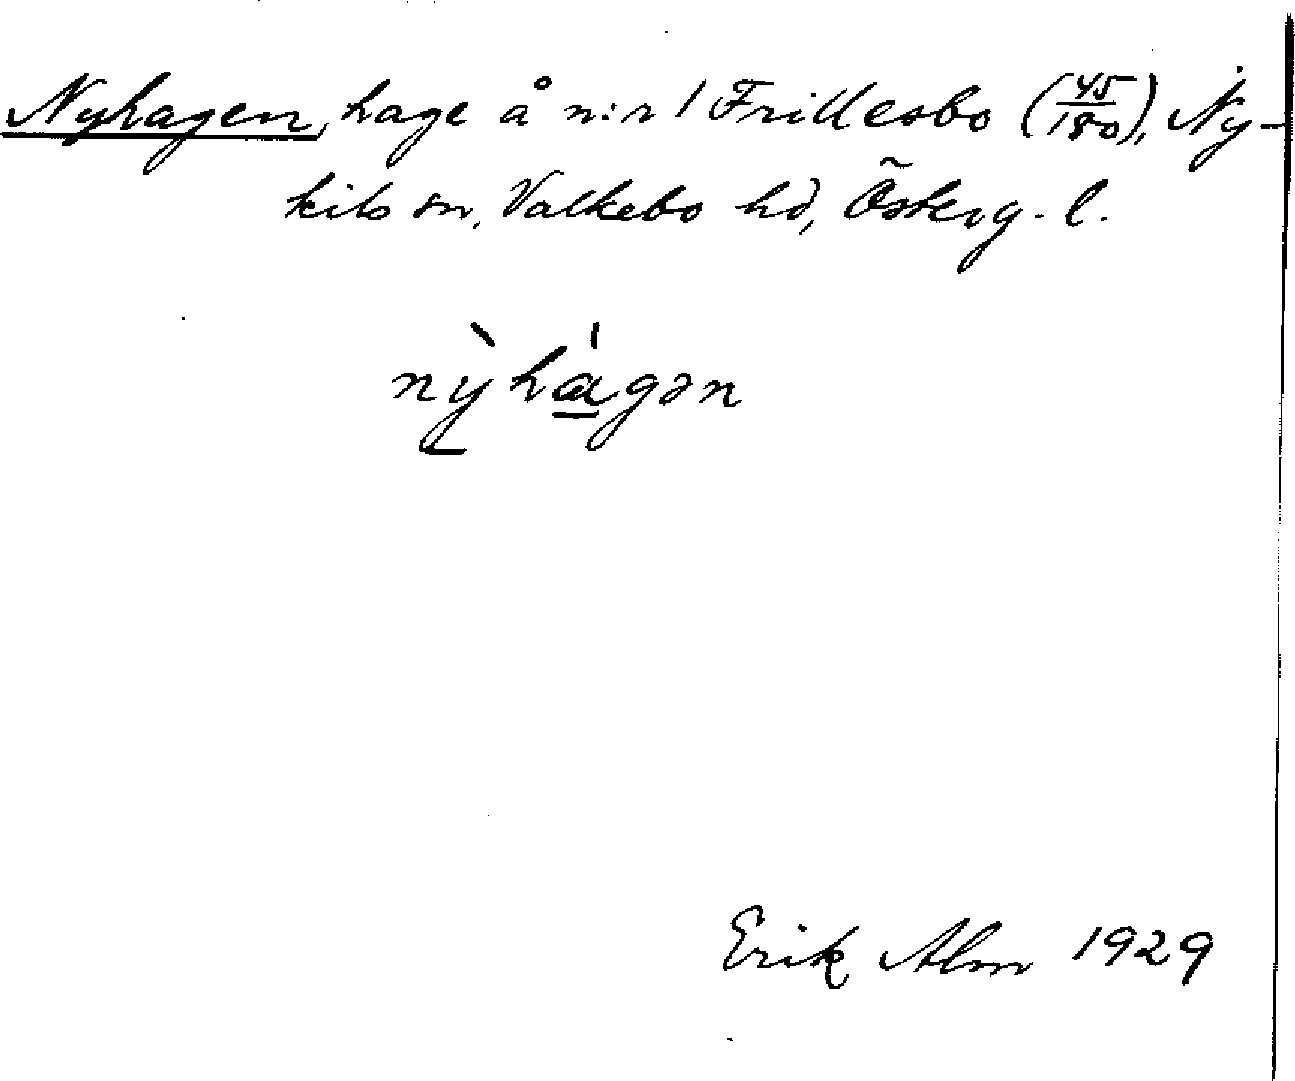 Nyhagen, hage å n:r 1 Frillesbo (45/180), Ny-
kils sn, Valkebo hd, Österg. l.
nỳ̠há̠gən
Erik Alm 1929